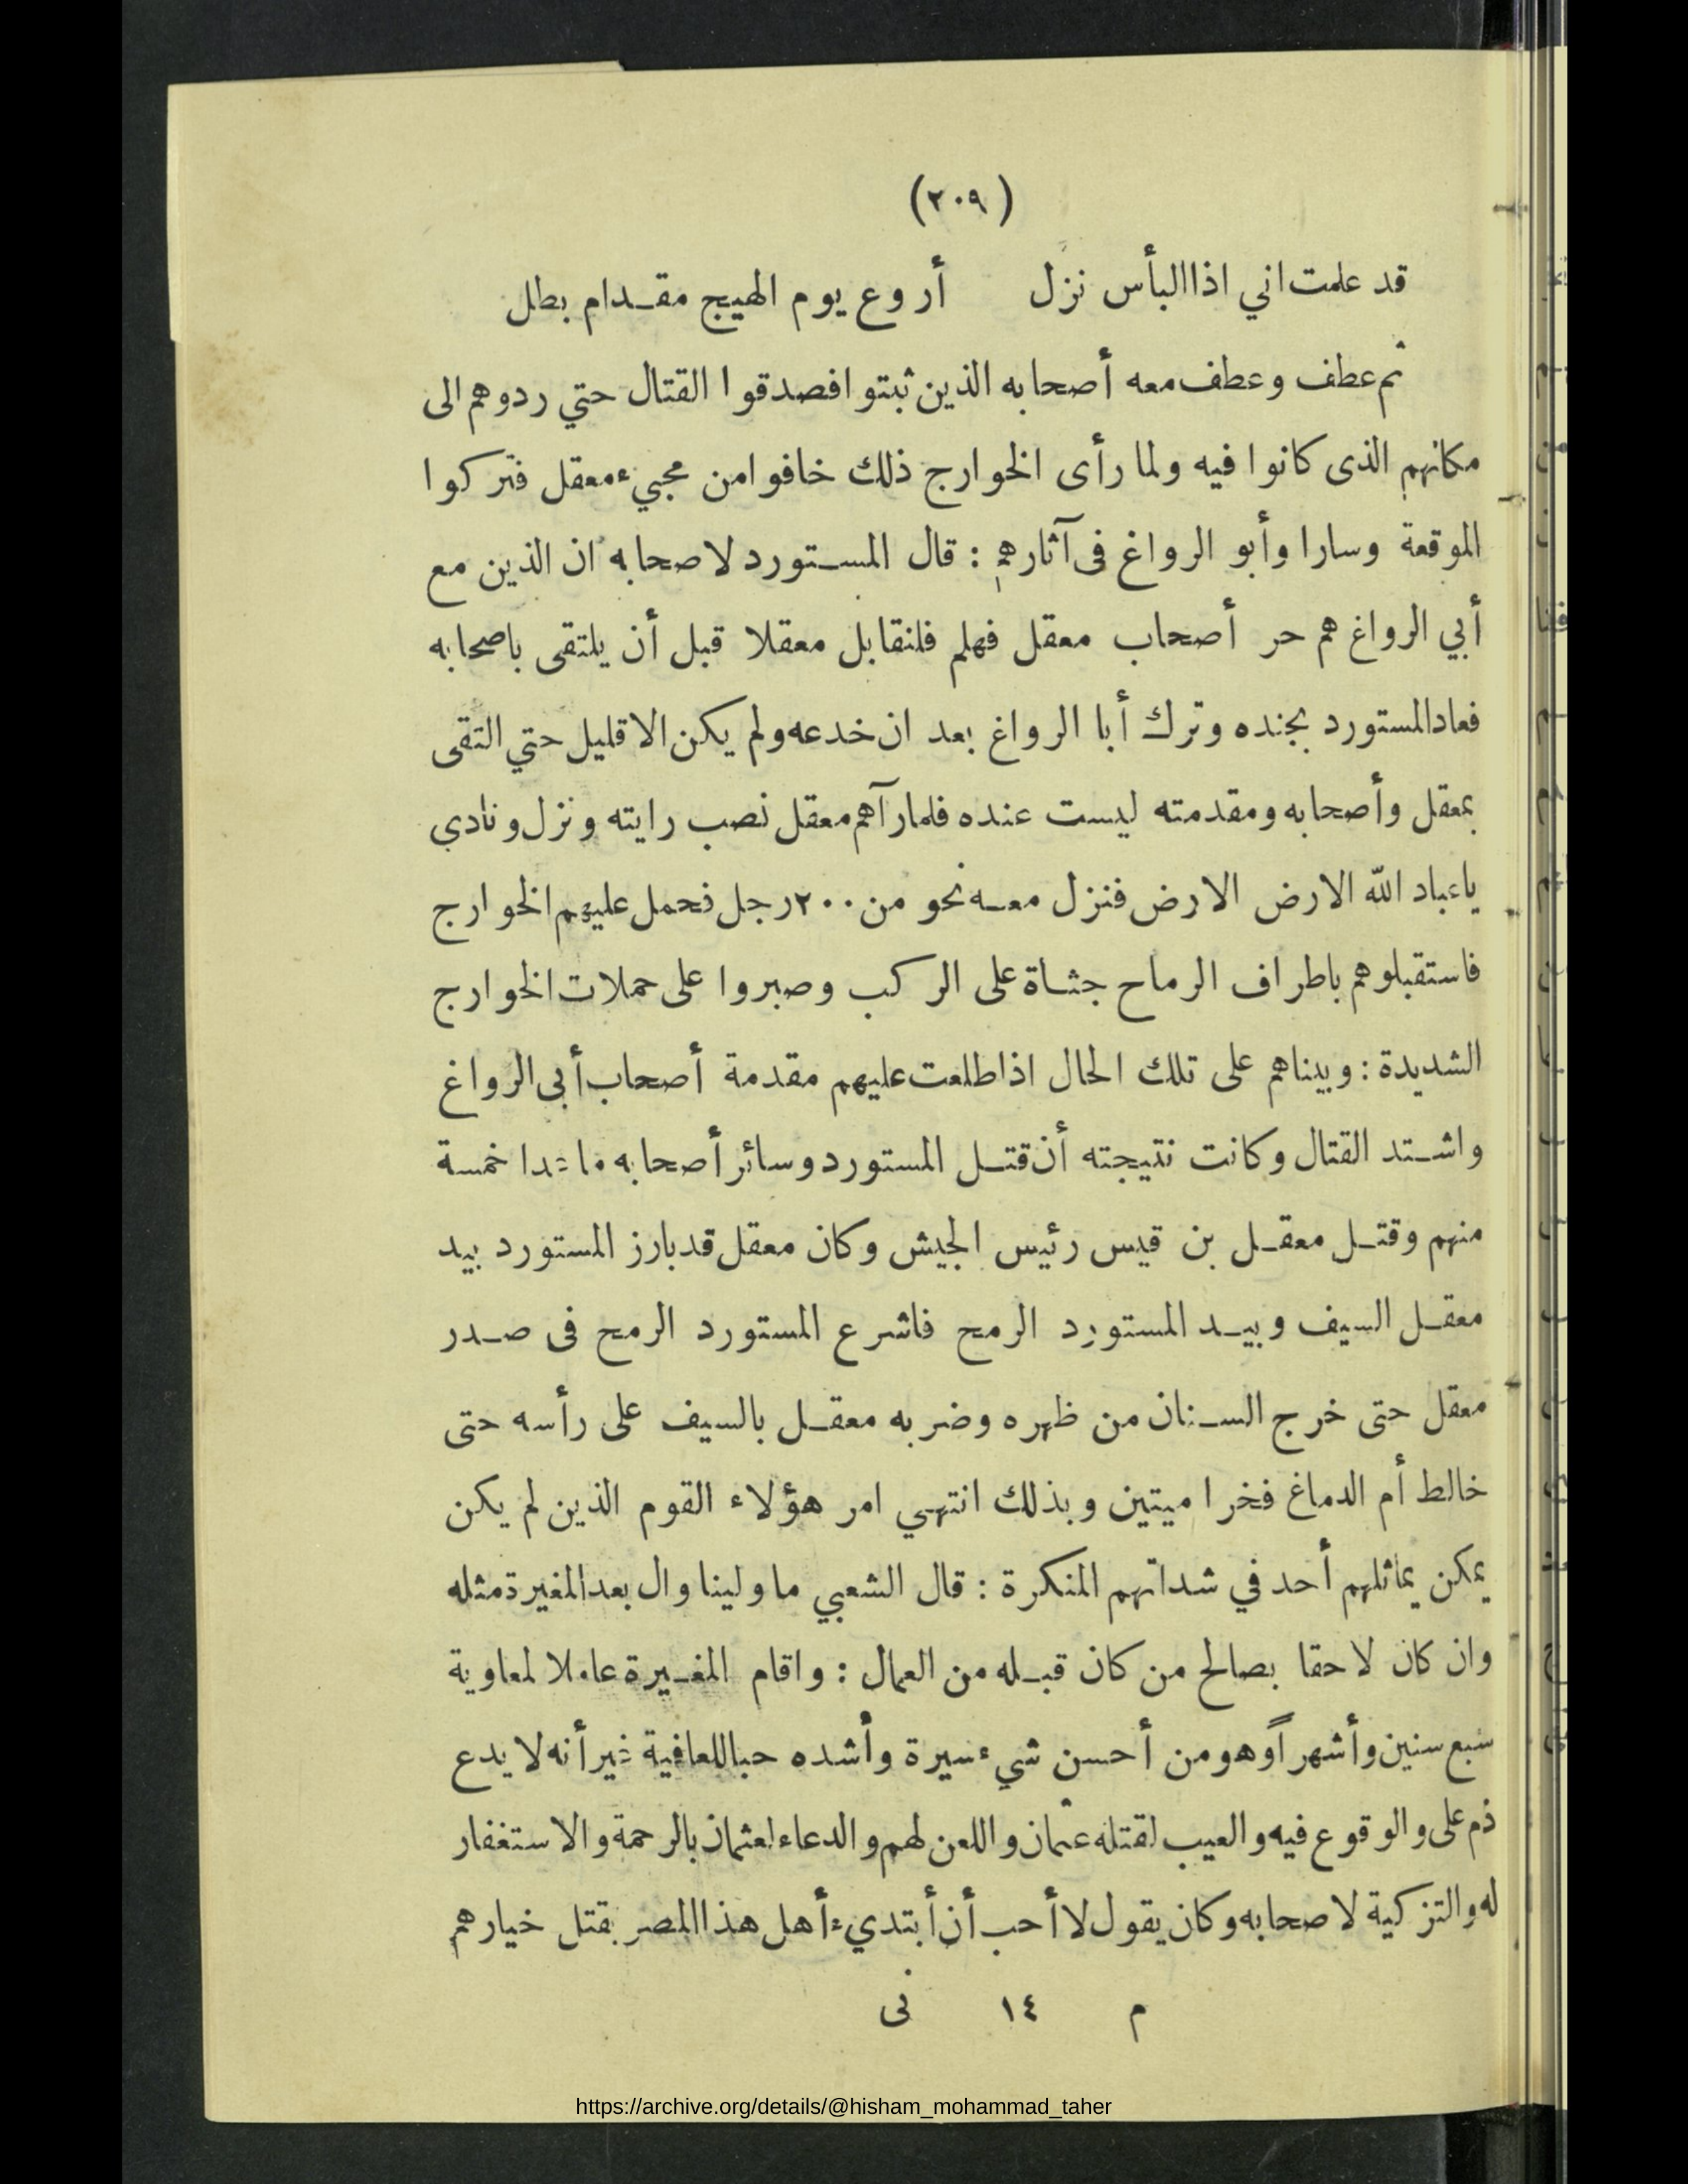 (٢٠٩)
قد علمت اني اذا البأس نزل أروع يوم الهيج مقدام بطل
ثم عطف وعطف معه أصحابه الذين ثبتوا فصدقوا القتال حتي ردوهم الى
مكانهم الذى كانوا فيه ولما رأى الخوارج ذلك خافوا من مجيء معقل فتركوا
الموقعة وسارا وأبو الرواغ فى آثارهم : قال المستورد لاصحابه ان الذين مع
أبي الرواغ هم حر أصحاب معقل فهلم فلنقابل معقلا قبل أن يلتقى باصحابه
فعاد المستورد بجنده وترك أبا الرواغ بعد ان خدعه ولم يكن الا قليل حتي التقى
بمعقل وأصحابه ومقدمته ليست عنده فلما رآهم معقل نصب رايته ونزل ونادي
ياعباد الله الارض الارض فنزل معه نحو من ٢٠٠ رجل فحمل عليهم الخوارج
فاستقبلوهم باطراف الرماح جثاة على الركب وصبروا على حملات الخوارج
الشديدة : وبيناهم على تلك الحال اذا طلعت عليهم مقدمة أصحاب أبى الرواغ
واشتد القتال وكانت نتيجته أن قتل المستورد وسائر أصحابه ماعدا خمسة
منهم وقتل معقل بن قيس رئيس الجيش وكان معقل قد بارز المستورد بيد
معقل السيف وبيد المستورد الرمح فاشرع المستورد الرمح فى صدر
معقل حتى خرج السنان من ظهره وضربه معقل بالسيف على رأسه حتى
خالط أم الدماغ فخرا ميتين وبذلك انتهي امر هؤلاء القوم الذين لم يكن
يمكن يماثلهم أحد في شداتهم المنكرة : قال الشعبي ما ولينا وال بعد المغيرة مثله
وان كان لاحقا بصالح من كان قبله من العمال : واقام المغيرة عاملا لمعاوية
سبع سنين وأشهراً وهو من أحسن شيء سيرة وأشده حبا للعافية غير أنه لا يدع
ذم على والوقوع فيه والعيب لقتله عثمان واللعن لهم والدعاء لعثمان بالرحمة والاستغفار
له والتزكية لاصحابه وكان يقول لا أحب أن أبتديء أهل هذا المصر بقتل خيارهم
م ١٤ نى
https://archive.org/details/@hisham_mohammad_taher